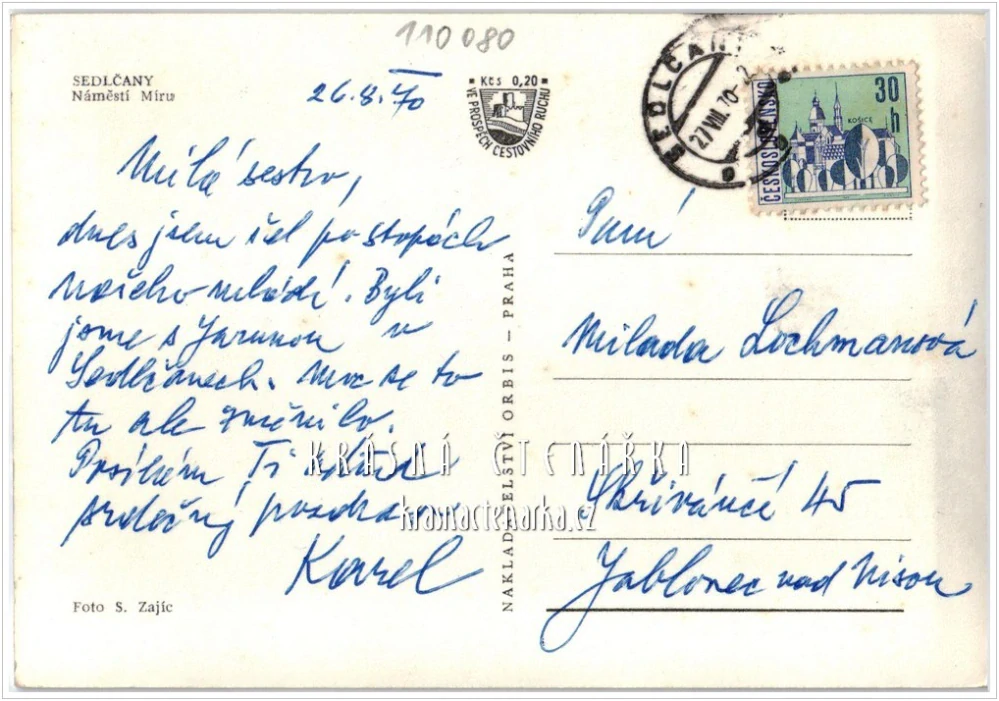 110 080
SEDLČANY
Náměstí Míru
26.8.70
■ Kčs 0,20 ■
VE PROSPĚCH CESTOVNÍHO RUCHU
SEDLČANY
27.VIII.70-
ČESKOSLOVENSKO
30 h
KOŠICE
Milá sestro,
dnes jsem šel po stopách
našeho mládí. Byli
jsme s Jarunou v
Sedlčanech. Moc se to
tu ale změnilo.
Posílám Ti
srdečný pozdrav
Karel
Foto S. Zajíc
NAKLADATELSTVÍ ORBIS — PRAHA
Paní
Milada Lochmanová
Skřivánčí 45
Jablonec nad Nisou
KRÁSNÁ ČTENÁŘKA
krasnactenarka.cz